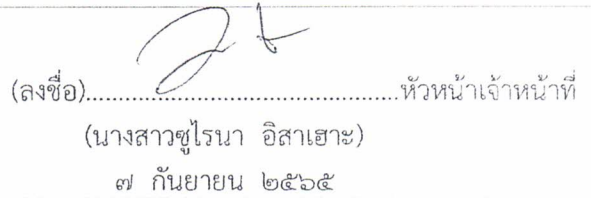 (ลงชื่อ)........................................หัวหน้าเจ้าหน้าที่
(นางสาวซูไรนา อิสาเฮาะ)
๗ กันยายน ๒๕๖๕